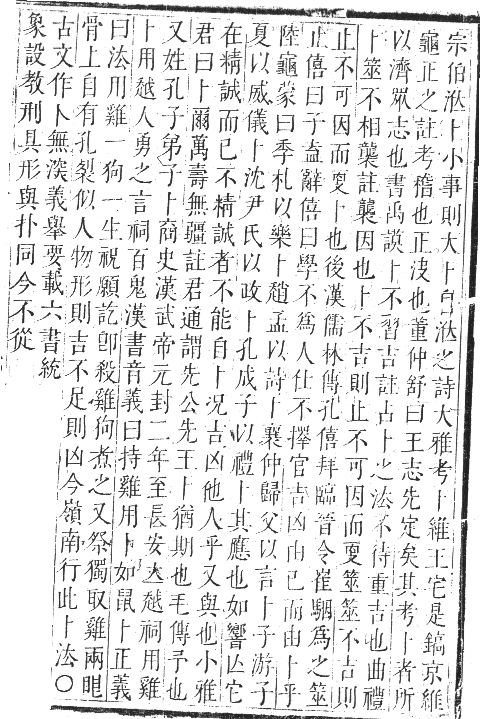 宗伯涖卜小事則大卜自涖之詩大雅考卜維王宅是鎬京維
龜正之註考稽也正決也董仲舒曰王志先定矣其考卜者所
以濟眾志也書禹謨卜不習吉註占卜之法不待重吉也曲禮
卜筮不相襲註襲因也卜不吉則止不可因而更筮筮不吉則
止不可因而更卜也後漢儒林傳孔僖拜臨晉令崔駰爲之筮
止僖曰子盍辭僖曰學不爲人仕不擇官吉凶由己而由卜乎
陸龜蒙曰季札以樂卜趙孟以詩卜襄仲歸父以言卜子游子
夏以威儀卜沈尹氏以政卜孔成子以禮卜其應也如響亾它
在精誠而已不精誠者不能自卜況吉凶他人乎又與也小雅
君曰卜爾萬壽無疆註君通謂先公先王卜猶期也毛傳予也
又姓孔子弟子卜商史漢武帝元封二年至長安立越祠用雞
卜用越人勇之言祠百鬼漢書音義曰持雞用卜如鼠卜正義
曰法用雞一狗一生祝願訖卽殺雞狗煮之又祭獨取雞兩眼
骨上自有孔裂似人物形則吉不足則凶今嶺南行此卜法〇
古文作卜無深義舉要載六書統
象設教刑具形與扑同今不從